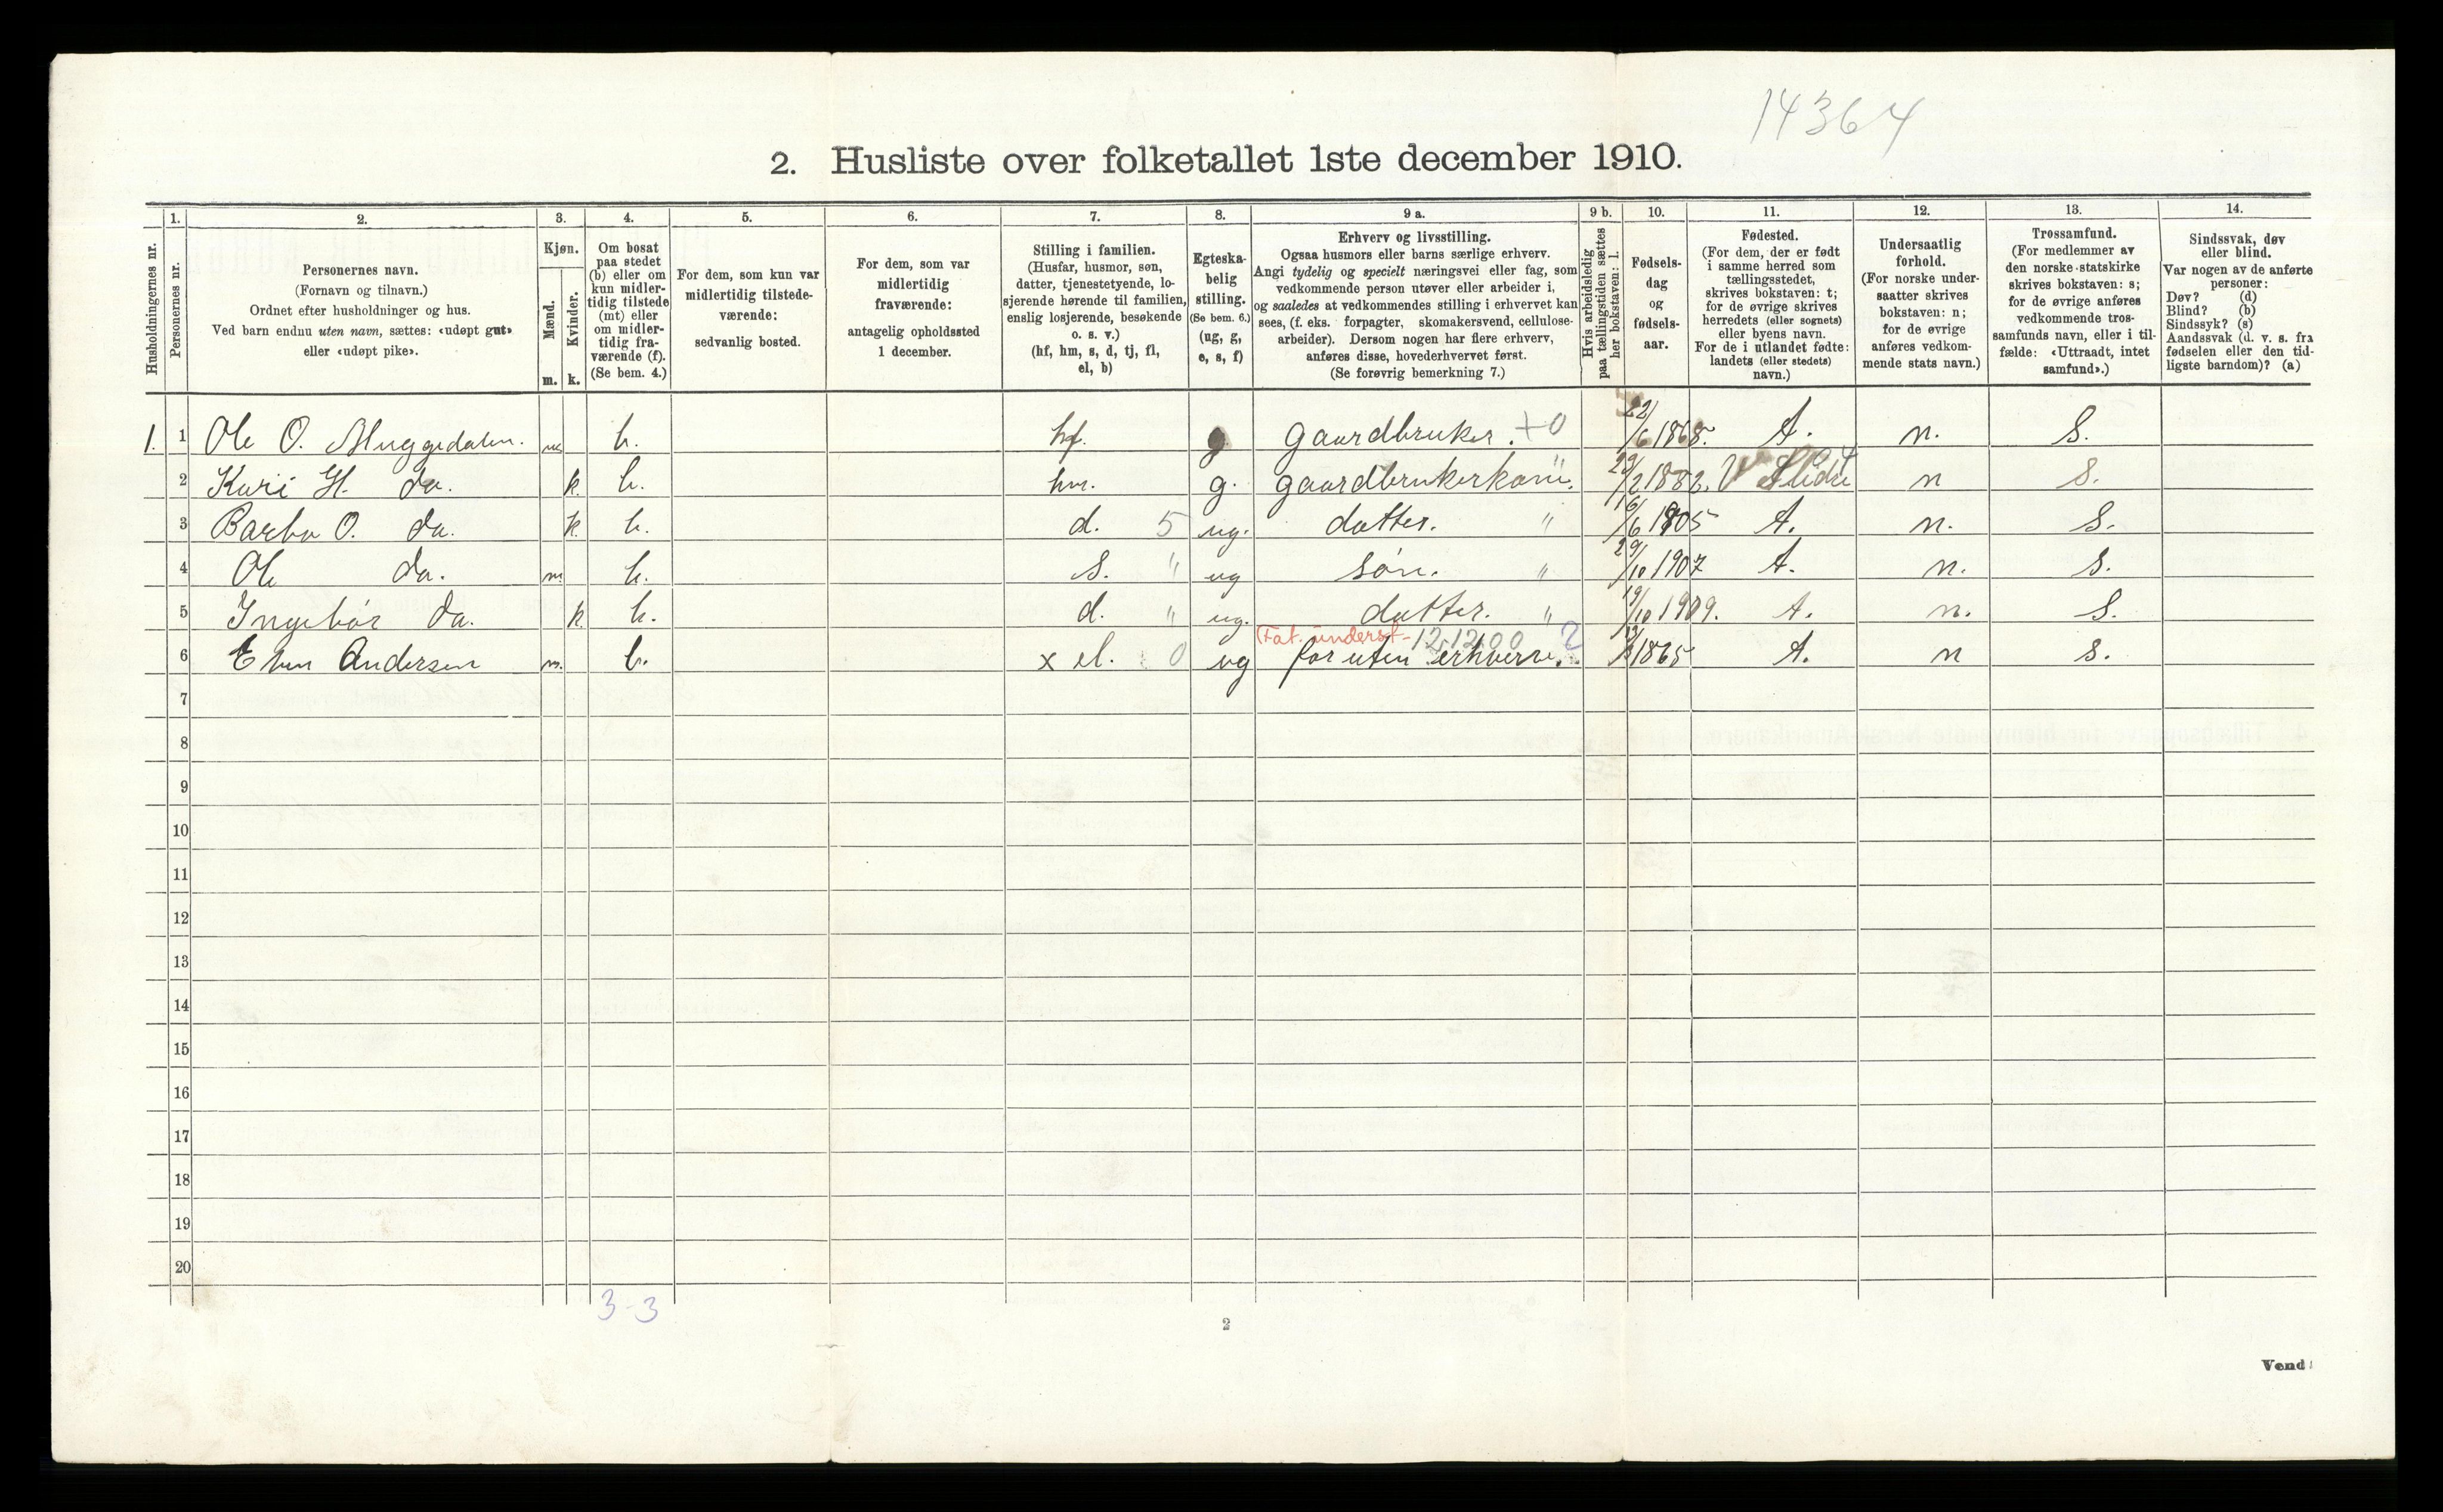 14364
2. Husliste over folketallet 1ste december 1910.
Husholdningernes nr.
1.
Personernes nr.
2.
Personernes navn.
(Fornavn og tilnavn.)
Ordnet efter husholdninger og hus.
Ved barn endnu uten navn, sættes: «udøpt gut»
eller «udøpt pike».
3.
Kjøn.
Mænd.
Kvinder.
m. k.
4.
Om bosat
paa stedet
(b) eller om
kun midler-
tidig tilstede
(mt) eller
om midler-
tidig fra-
værende (f).
(Se bem. 4.)
5.
For dem, som kun var
midlertidig tilstede-
værende:
sedvanlig bosted.
6.
For dem, som var
midlertidig
fraværende:
antagelig opholdssted
1 december.
7.
Stilling i familien.
(Husfar, husmor, søn,
datter, tjenestetyende, lo-
sjerende hørende til familien,
enslig losjerende, besøkende
o. s. v.)
(hf, hm, s, d, tj, fl,
el, b)
8.
Egteska-
belig
stilling.
(Se bem. 6.)
(ug, g,
e, s, f)
9 a.
Erhverv og livsstilling.
Ogsaa husmors eller barns særlige erhverv.
Angi tydelig og specielt næringsvei eller fag, som
vedkommende person utøver eller arbeider i,
og saaledes at vedkommendes stilling i erhvervet kan
sees, (f. eks. forpagter, skomakersvend, cellulose-
arbeider). Dersom nogen har flere erhverv,
anføres disse, hovederhvervet først.
(Se forøvrig bemerkning 7.)
9 b.
Hvis arbeidsledig
paa tællingstiden sættes
her bokstaven: l.
10.
Fødsels-
dag
og
fødsels-
aar.
11.
Fødested.
(For dem, der er født
i samme herred som
tællingsstedet,
skrives bokstaven: t;
for de øvrige skrives
herredets (eller sognets)
eller byens navn.
For de i utlandet fødte:
landets (eller stedets)
navn.)
12.
Undersaatlig
forhold.
(For norske under-
saatter skrives
bokstaven: n;
for de øvrige
anføres vedkom-
mende stats navn.)
13.
Trossamfund.
(For medlemmer av
den norske statskirke
skrives bokstaven: s;
for de øvrige anføres
vedkommende tros-
samfunds navn, eller i til-
fælde: «Uttraadt, intet
samfund».)
14.
Sindssvak, døv
eller blind.
Var nogen av de anførte
personer:
Døv? (d)
Blind? (b)
Sindssyk? (s)
Aandssvak (d. v. s. fra
fødselen eller den tid-
ligste barndom)? (a)
1. 1 Ole O. m b. hf. g gaardbruker. +0 22/6 1868. t. n. s.
2 Kari H. do. k. b. hm. g. 1882. V Slidre 4 n s.
3 Barbo O. do. k. b. d. 5 ug. datter. " 16/6 1905 t. n. s.
4 Ole do. m. b. s. " ug søn. " 29/10 1907 t. n. s.
5 Ingebor do. k. b. d. " ug. datter. " 19/10 1909. t. n. s.
Fat. underst- 12,12,00 2
6 Andersen m. b. x el. 0 ug for uten erhverv. 1865 t. n s.
7
8
9
10
11
12
13
14
15
16
17
18
19
20
3-3
2
Vend!